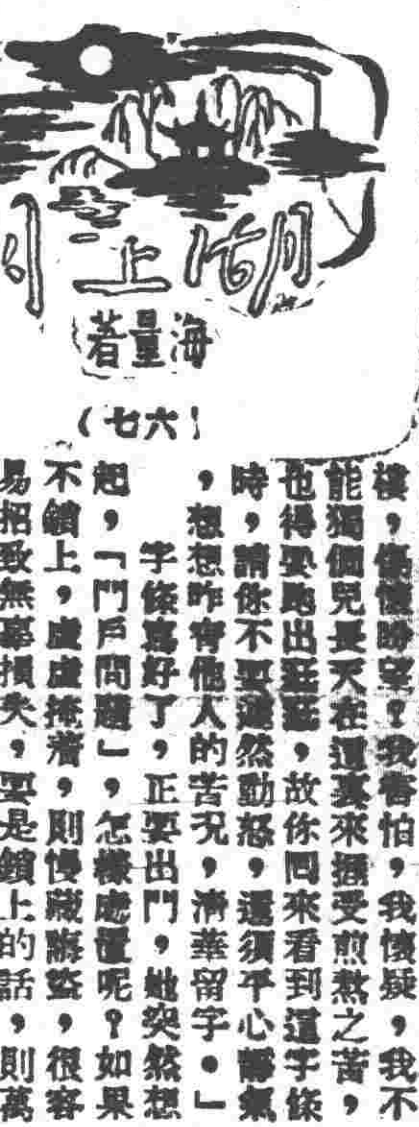 湖上
海量著
(六七)
樓，悵惘盼望？我害怕，我懷疑，我不
能獨個兒長天在這裏來捱受煎熬之苦，
也得要跑出逛逛，故你囘來看到這字條
時，請你不要遽然動怒，還須平心靜氣
，想想昨宵他人的苦況，清華留字。」
字條寫好了，正要出門，她突然想
起，「門戶問題」，怎樣處置呢？如果
不鎖上，虛虛掩着，則慢藏誨盜，很容
易招致無辜損失，要是鎖上的話，則萬